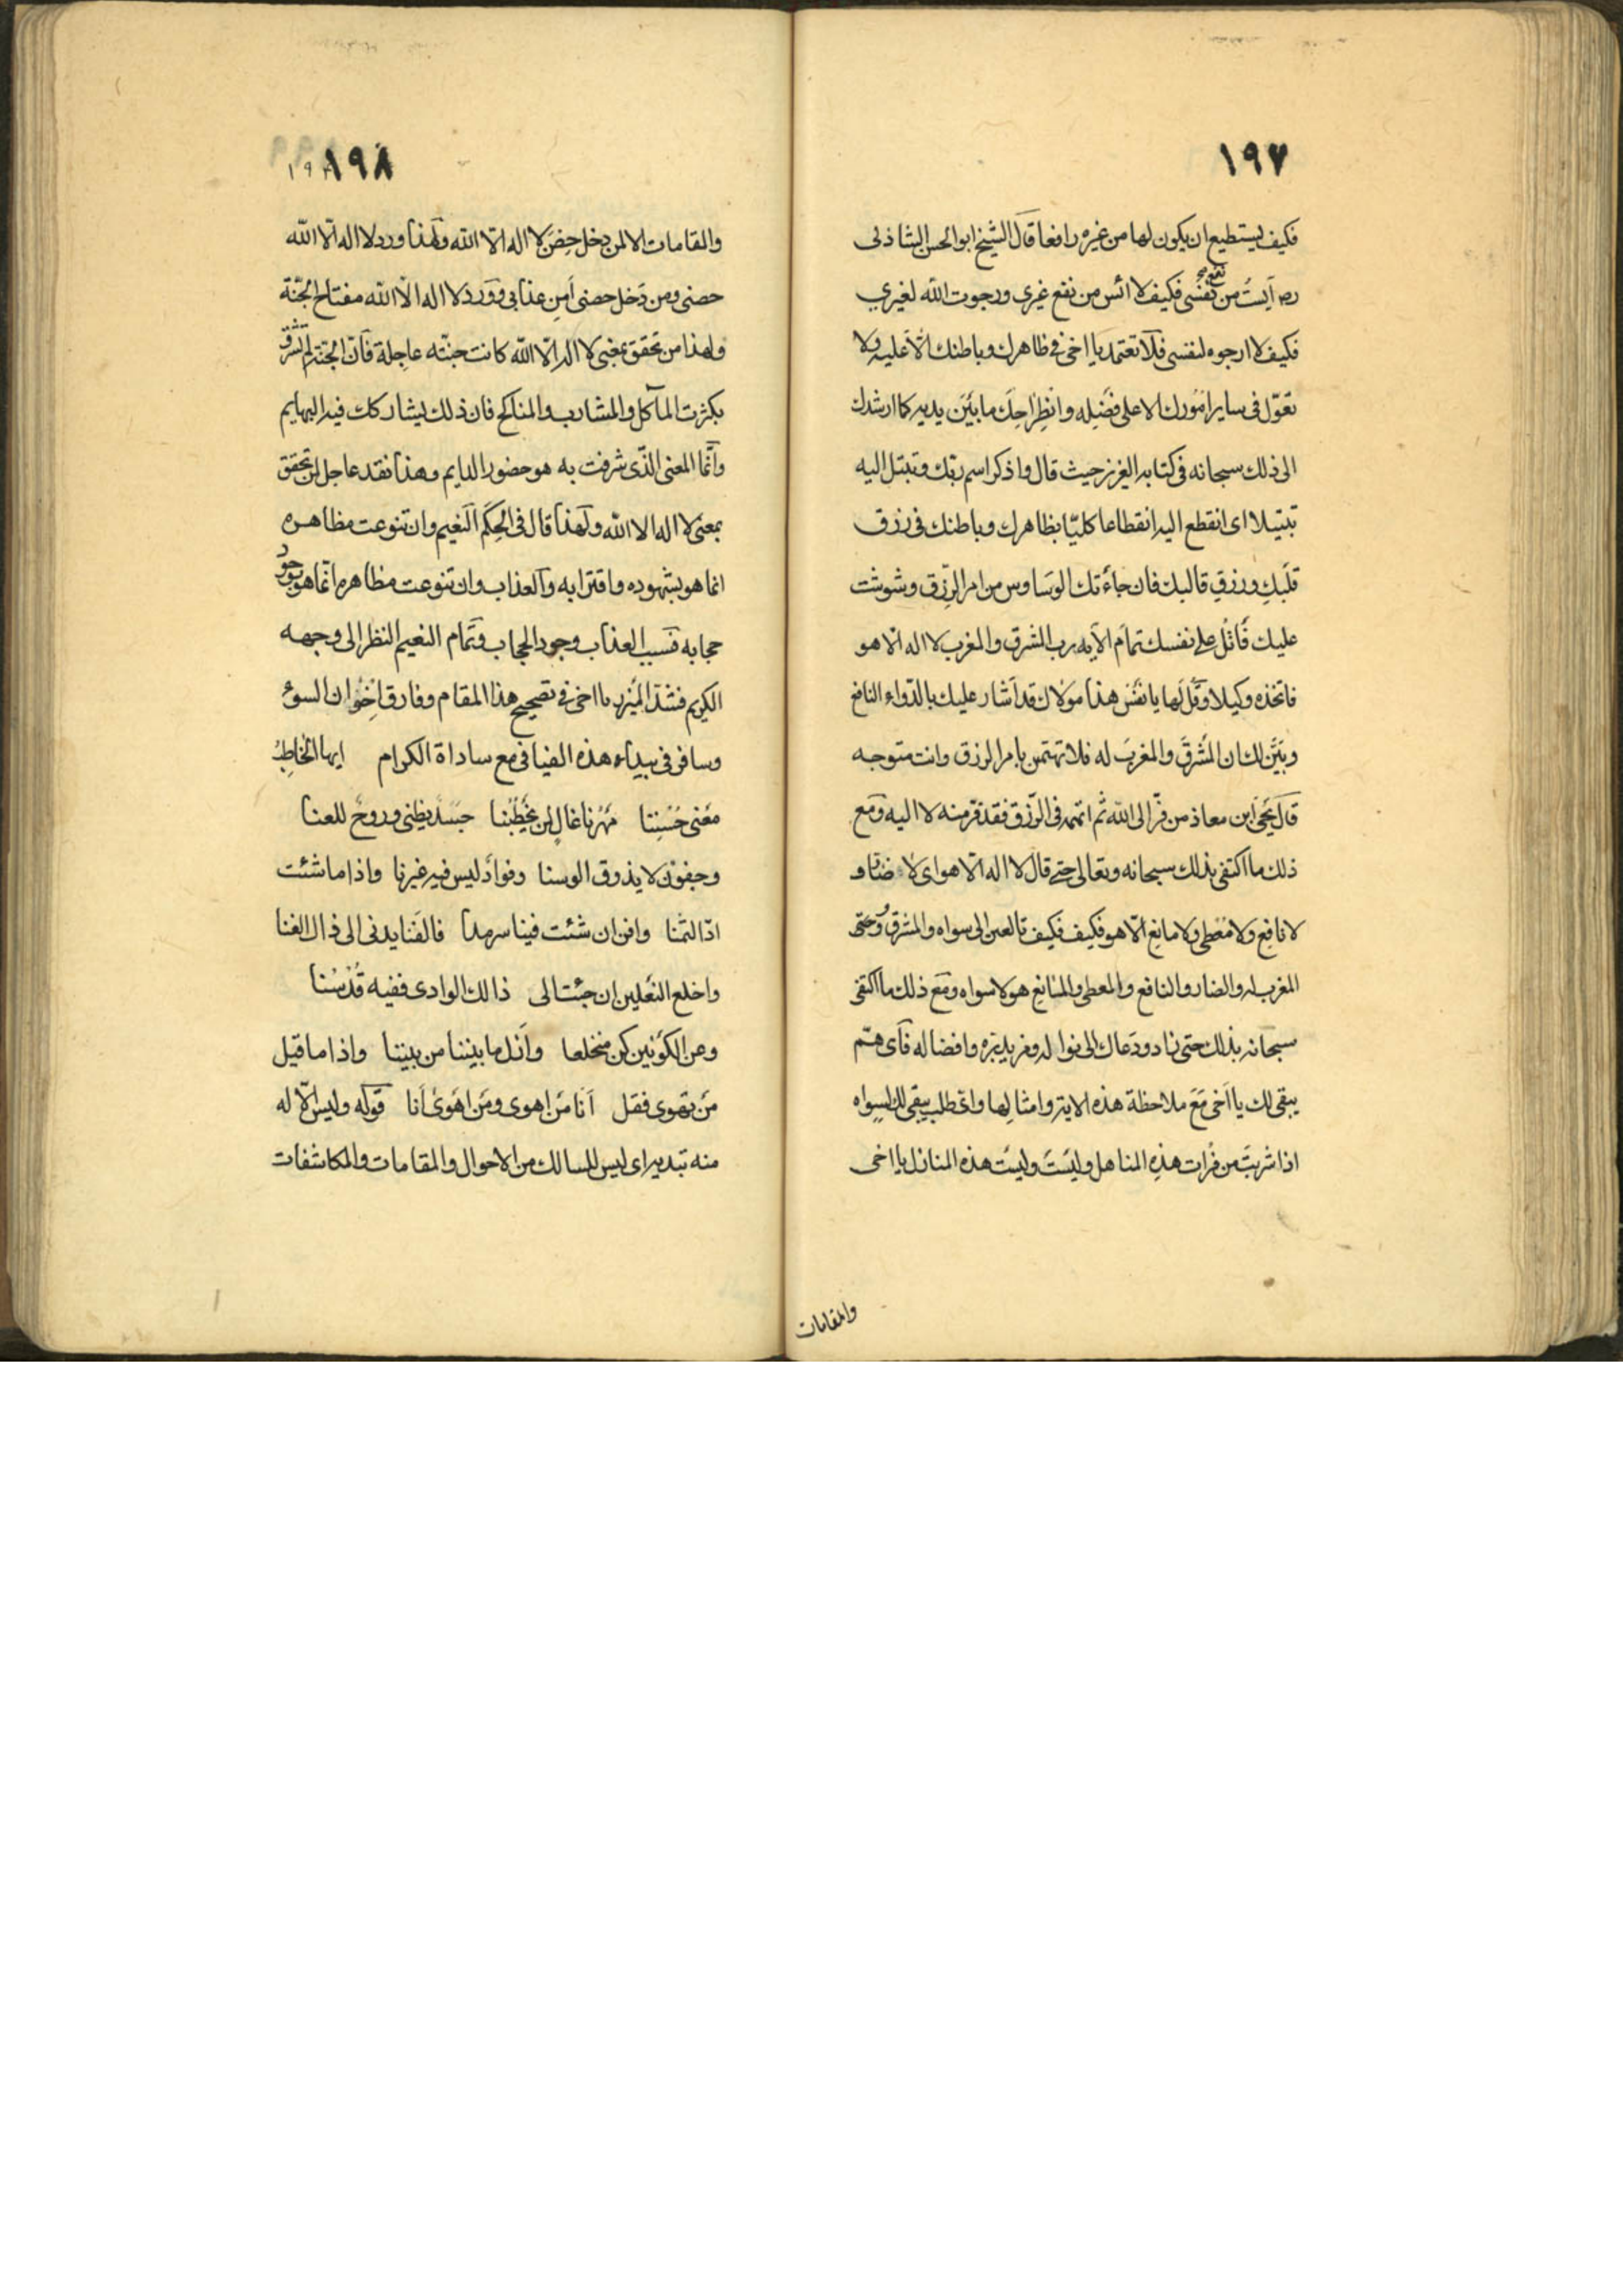 ١٩٧
فكيف يستطيع ان يكون لها من غيره رافعا قال الشيخ ابو الحسن الشاذلى
رضه آيست من نفع نفسى فكيف لا ائس من نفع غيرى ورجوت الله لغيري
فكيف لا ارجوه لنفسى فلا تعتمد يا اخى فى ظاهرك وباطنك الا عليه ولا
تعوّل فى ساير امورك الا على فضله وانطراحك ما بين يديه كما ارشدك
الى ذلك سبحانه فى كتابه العزيز حيث قال واذكر اسم ربك وتبتل اليه
تبتيلا اى انقطع اليه انقطاعا كليّا بظاهرك وباطنك فى رزق
قلبك ورزق قالبك فان جاءتك الوساوس من امر الرّزق وشوشت
عليك فاتل على نفسك تمام الآيه رب المشرق والمغرب لا اله الّا هو
فاتخذه وكيلا وقل لها يا نفس هذا مولاك قد اشار عليك بالدّواء النافع
وبيّن لك ان المشرق والمغرب له فلا تهتمن بامر الرزق وانت متوجه
قال يحيى ابن معاذ من فرّ الى الله ثم اتهمه فى الرّزق فقد فرّ منه لا اليه ومع
ذلك ما اكتفى بذلك سبحانه وتعالى حتى قال لا اله الّا هو اى لا ضار و
لا نافع ولا معطى ولا مانع الّا هو فكيف فكيف تا لعين الى سواه والمشرق وحتى
المغرب له والضار والنافع والمعطى والمانع هو لا سواه ومع ذلك ما اكتفى
سبحانه بذلك حتى نادو دعاك الى نواله ومزيد بره وافضاله فآى همّ
يبقى لك يا اخى مع ملاحظة هذه الاية وامثالها واى طلب يبقى لك لسواه
اذا شربت من فرات هذه المناهل وليست وليست هذه المنازل يا اخى
والمقامات
١٩٨ ١٩٨
والمقامات الا لمن دخل حصن لا اله الّا الله ولهذا ورد لا اله الّا الله
حصنى ومن دخل حصنى أمن عذابى وورد لا اله الّا الله مفتاح الجنّة
ولهذا من تحقق بمعنى لا اله الّا الله كانت جنّته عاجلة فآن الجنّة لم تشرق
بكثرت المآكل والمشارب والمناكح فان ذلك ليشاركك فيه البهايم
وآنّما المعنى الذّى شرفت به هو حضور الدايم وهذا نقد عاجل لمن تحقق
بمعنى لا اله الا الله ولهذا قال فى الحكم النعيم وان تنوعت مظاهره
انما هو بشهوده واقترابه والعذاب وان تنوعت مظاهره انما هو بوجود
حجابه فسبب العذاب وجود الحجاب وتمام النعيم النظر الى وجهه
الكريم فشدّ الميزر يا اخى فى تصحيح هذا المقام وفارق اخوان السوء
وسافر فى بيداء هذه الفيافى مع ساداة الكرام ايها الخاطب
معنى حسننا مهرنا غال لمن يخطبنا جسد يظنى وروح للعنا
وجفون لا يذوق الوسنا وفواد ليس فيه غيرنا واذا ما شئت
ادّ الثمنا وافن ان شئت فينا سرمدا فالفنا يدنى الى ذال الفنا
واخلع النعلين ان جئت الى ذالك الوادى ففيه قدسنا
وعن الكونين كن منخلعا وآنل ما بيننا من بيننا واذا ما قيل
من تهوى فقل آنا من اهوى ومن اهوى أنا قوله وليس الّا له
منه تبد يراى ليس للسالك من الاحوال والمقامات والمكاشفات